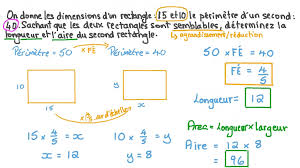 On donne les dimensions d'un rectangle : 15 et 10 le périmètre d'un second :
40. Sachant que les deux rectangles sont semblables, déterminez la
longueur et l'aire du second rectangle. ↳ agrandissement/réduction
Périmètre = 50 x FÉ Périmètre = 40
10
15
y
x
x 4/5 d'échelle
15 x 4/5 = x
10 x 4/5 = y
x = 12
y = 8
50 x FÉ = 40
FÉ = 4/5
Longueur = 12
Aire = Longueur x largeur
Aire = 12 x 8
= 96